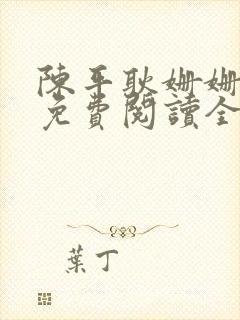 陳平耿姍姍
免費閱讀全
葉丁